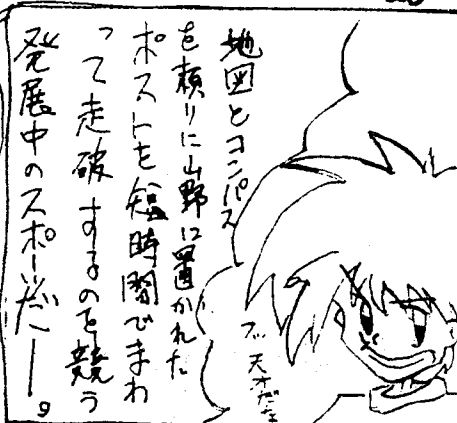 地図とコンパス
を頼りに山野に置かれた
ポストを短時間でまわ
って走破するのを競う
発展中のスポーツだー。
フッ天才だな